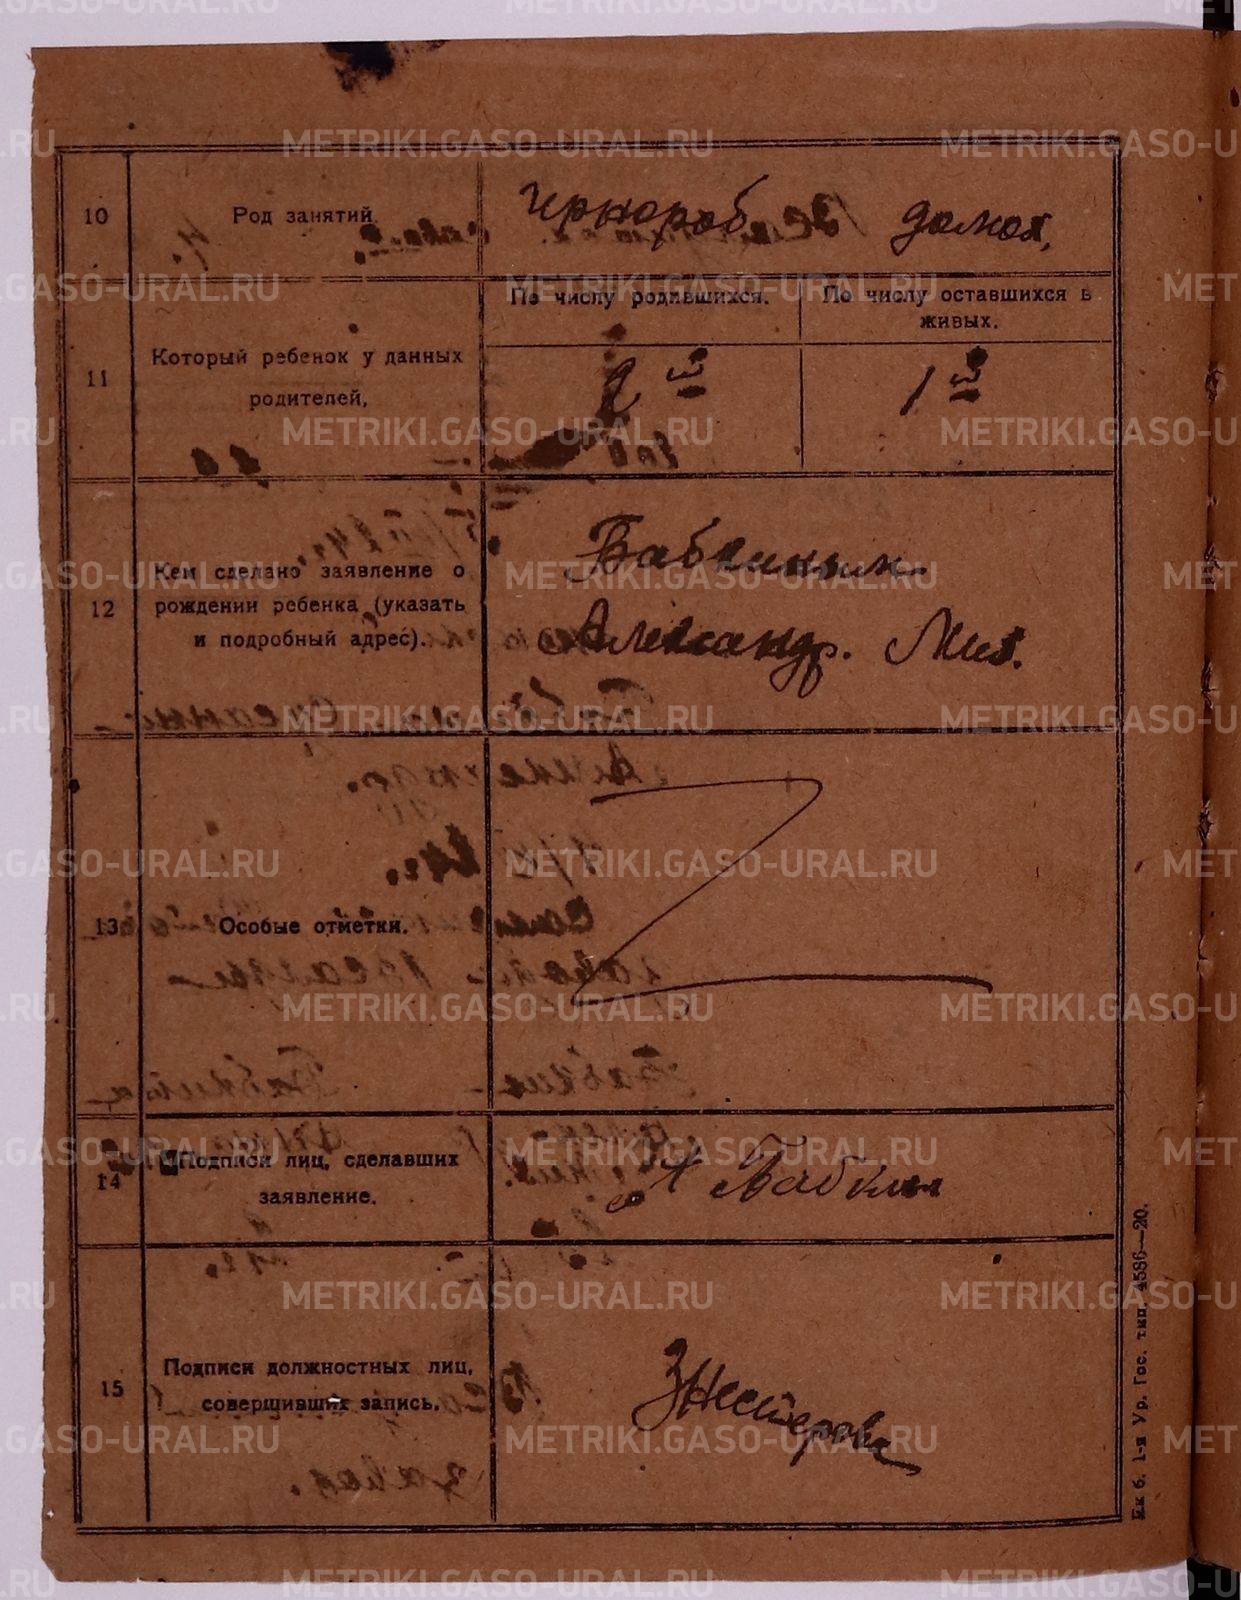 10
Род занятий.
чернораб домох.
11
Который ребенок у данных
родителей,
По числу родившихся.
По числу оставшихся в
живых.
2 й
1 й
12
Кем сделано заявление о
рождении ребенка (указать
и подробный адрес).
Бабкиным
Александр. Мих.
13
Особые отметки.
14
Подписи лиц, сделавших
заявление.
А Бабкин
15
Подписи должностных лиц,
совершивших запись.
ЗНестерова
Ек б. 1-я Ур. Гос. тип. 4586—20.
METRIKI.GASO-URAL.RU